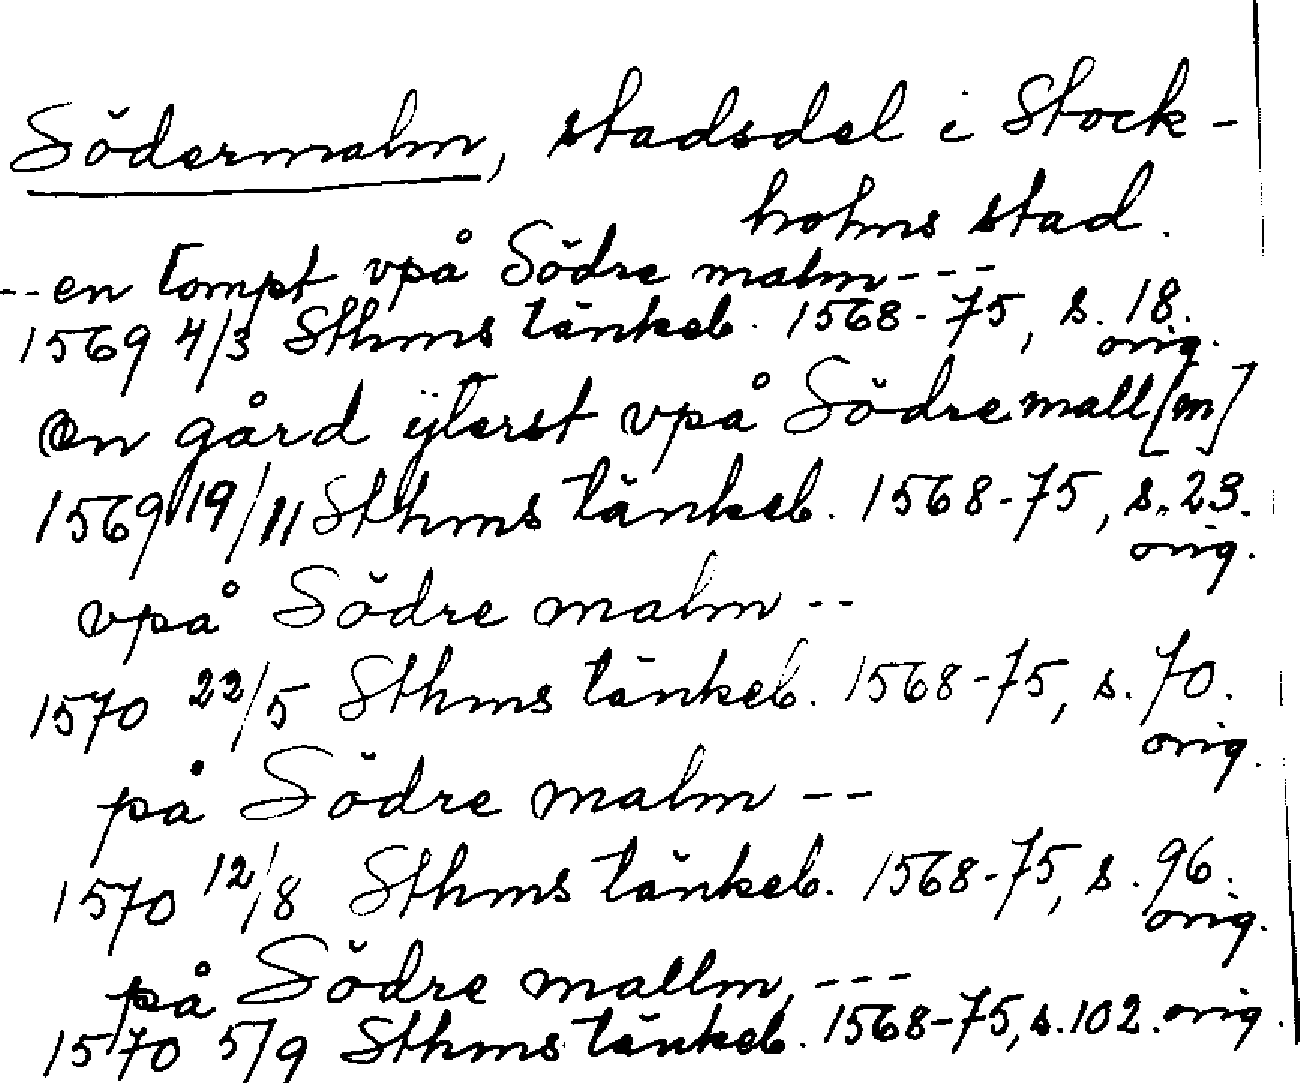 Södermalm, stadsdel i Stock-
holms stad.
--en tompt vpå Södre malm---
1569 4/3 Sthms tänkeb. 1568-75, s. 18.
orig.
en gård ÿterst vpå Södre mall[m]
1569 19/11 Sthms tänkeb. 1568-75, s. 23.
orig.
vpå Södre malm --
1570 22/5 Sthms tänkeb. 1568-75, s. 70.
orig.
på Södre malm --
1570 12/8 Sthms tänkeb. 1568-75, s. 96.
orig.
på Södre mallm, ---
1570 5/9 Sthms tänkeb. 1568-75, s. 102. orig.